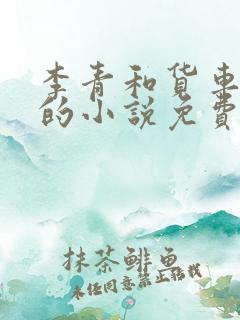 李青和货車
的小説免費
抹茶鲱鱼
未经同意禁止转载